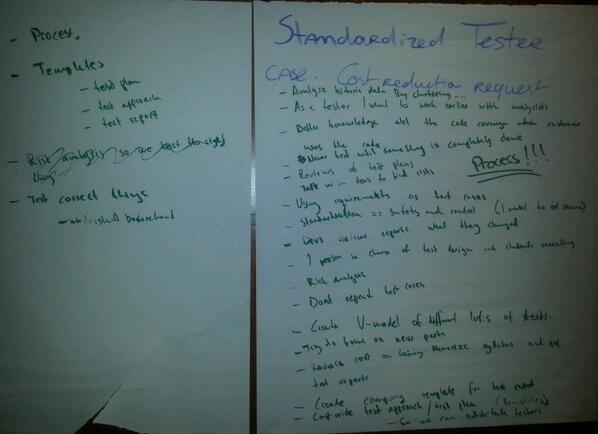 - Process.
- Templates
- test plan
- test approach
- test report
- Risk analysis so we test the right thing
- Test correct things
- understand beforehand
Standardized Tester
CASE. Cost reduction request
- Analyse historic data. Bug clustering...
- As a tester I want to work earlier with analysts
- Better knowledge abt the code coverage when customer
uses the code
- Never test until something is completely done
- Reviews of test plans
Process!!!
- Talk with devs to find risks
- Using requirements as test cases
- Standardisation => Safety and control (I want to feel secure)
- Devs deliver reports what they changed
- 1 person in charge of test design and students executing
- Risk analysis
- Dont repeat test cases
- Create V-model of different levels of tests.
- Try to focus on new parts
- Reduce cost on training. syllabus and get
test experts
- Create company template for test report
- test approach / test plan
- So we can testers